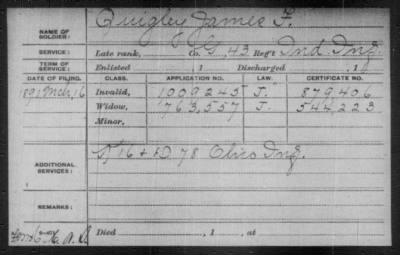 NAME OF SOLDIER: Quigley, James F.
SERVICE: Late rank, Co. G, 43 Reg't Ind. Inf.
TERM OF SERVICE: Enlisted , 1 Discharged , 1
DATE OF FILING. CLASS. APPLICATION NO. LAW. CERTIFICATE NO.
1891 Mch, 16 Invalid, 1009245 J. 879,406
Widow, 763,557 J. 544,223
Minor,
ADDITIONAL SERVICES: 16 + D. 78 Ohio Inf.
REMARKS:
Died , 1 , at